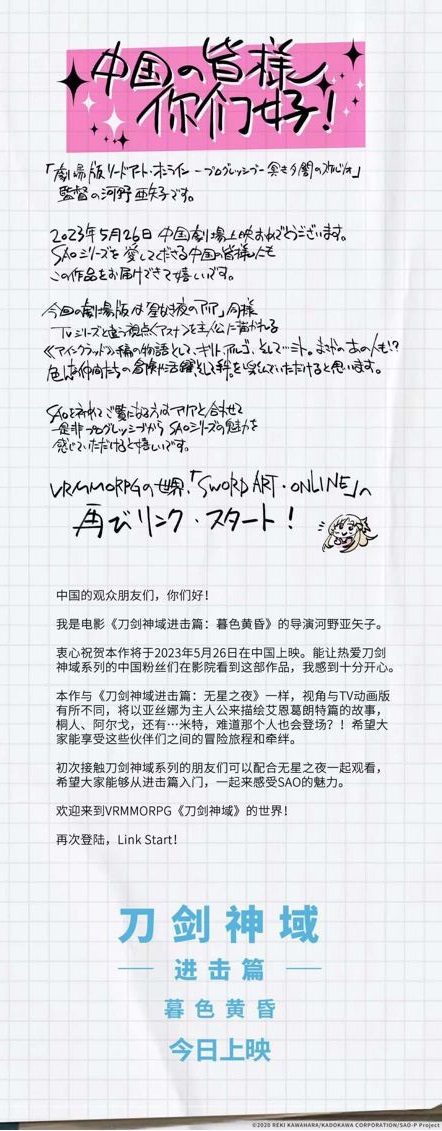 中国の皆様
你们好！
「劇場版ソードアート・オンライン －プログレッシブ－ 冥き夕闇のスケルツォ」
監督の河野亜矢子です。
2023年5月26日 中国劇場上映おめでとうございます。
SAOシリーズを愛してくださる中国の皆様にも
この作品をお届けできて嬉しいです。
今回の劇場版は「星なき夜のアリア」同様
TVシリーズと違う視点でアスナを主人公に描かれる
《アインクラッド》編の物語として、キリト、アルゴ、そして…ミト。まさかのあの人も!?
色んな仲間たちの冒険や活躍、そして絆を楽しんでいただけると思います。
SAOを初めてご覧になる方はアリアと合わせて
是非プログレッシブからSAOシリーズの魅力を
感じていただけると嬉しいです。
VRMMORPGの世界、「SWORD ART・ONLINE」へ
再びリンク・スタート！
中国的观众朋友们，你们好！
我是电影《刀剑神域进击篇：暮色黄昏》的导演河野亚矢子。
衷心祝贺本作将于2023年5月26日在中国上映。能让热爱刀剑
神域系列的中国粉丝们在影院看到这部作品，我感到十分开心。
本作与《刀剑神域进击篇：无星之夜》一样，视角与TV动画版
有所不同，将以亚丝娜为主人公来描绘艾恩葛朗特篇的故事，
桐人、阿尔戈，还有…米特，难道那个人也会登场？！希望大
家能享受这些伙伴们之间的冒险旅程和牵绊。
初次接触刀剑神域系列的朋友们可以配合无星之夜一起观看，
希望大家能够从进击篇入门，一起来感受SAO的魅力。
欢迎来到VRMMORPG《刀剑神域》的世界！
再次登陆，Link Start！
刀剑神域
进击篇
暮色黄昏
今日上映
©2020 REKI KAWAHARA/KADOKAWA CORPORATION/SAO-P Project